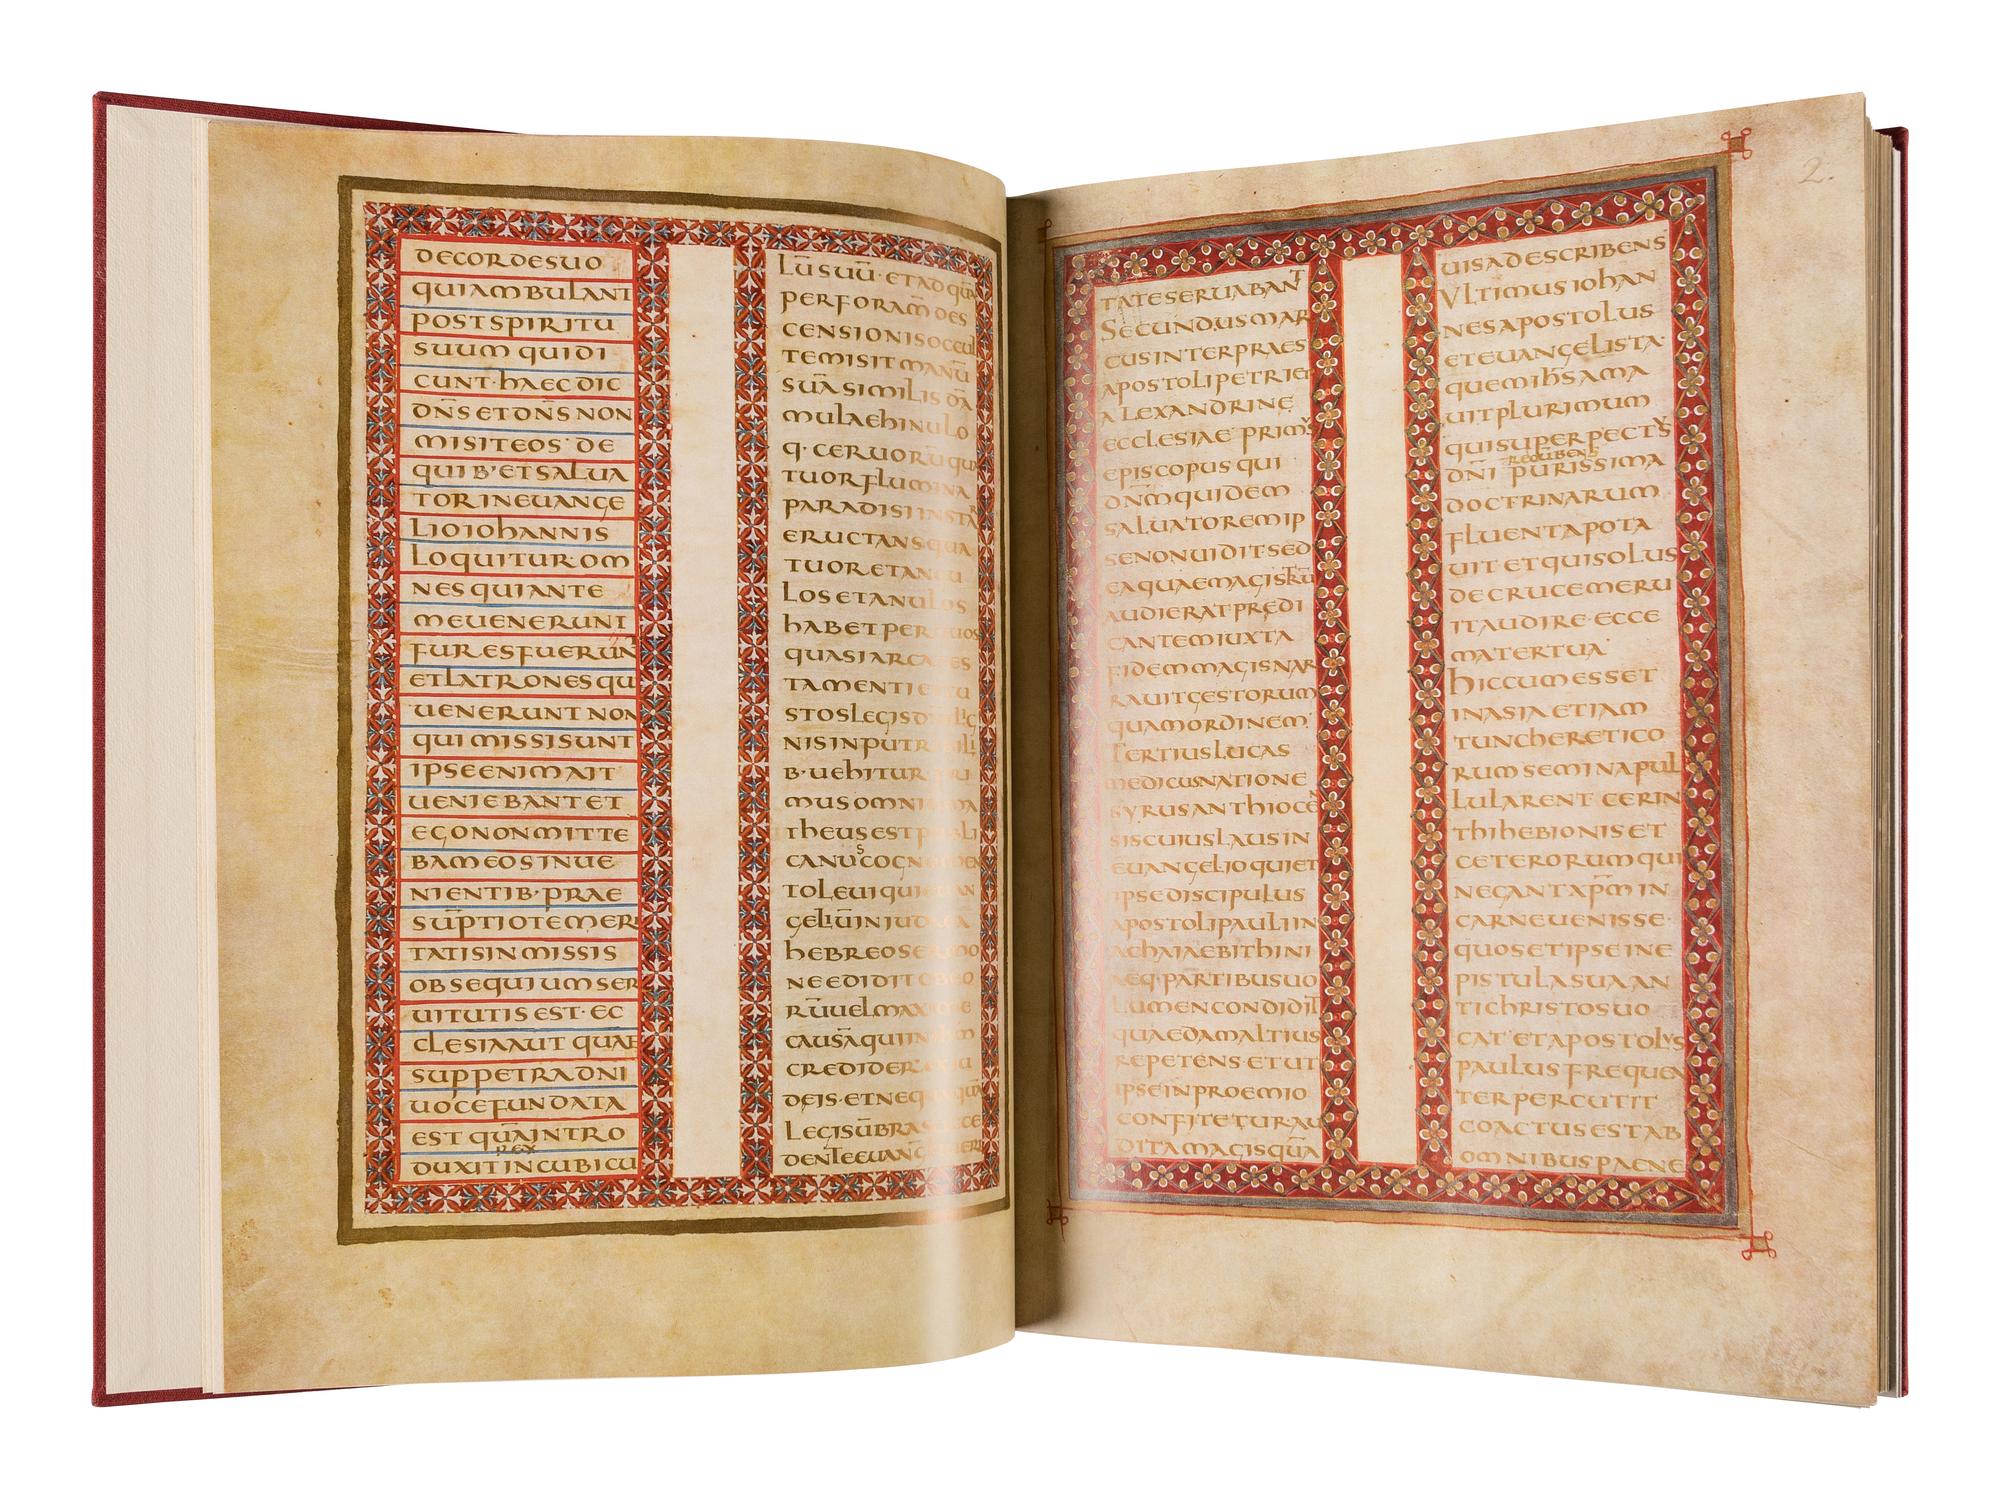 DECORDESUO
QUIAMBULANT
POSTSPIRITU
SUUM QUIDI
CUNT·HAEC DIC
DN̄S ET DN̄S NON
MISITEOS· DE
QUIB·ETSALUA
TORINEUANGE
LIOIOHANNIS
LOQUITUR·OM
NES QUIANTE
MEUENERUNT
FURESFUERUN̄T
ETLATRONESQU
UENERUNT NON
QUI MISSISUNT
IPSEENIMAIT
UENIEBANTET
EGONONMITTE
BAMEOSINUE
NIENTIB·PRAE
SŪPTIOTEMER
TATISINMISSIS
OBSEQUIUMSER
UITUTIS EST· EC
CLESIAAUT QUAE
SUPPETRADNI
UOCEFUNDATA
EST QUĀINTRO
REX
DUXIT INCUBICU
LŪSUŪ·ETADQŪ
PERFORAM̄ DES
CENSIONISOCCUL
TEMISITMANŪ
SUĀSIMILIS DĀ
MULAEHINULO
Q· CERUORŪQUA
TUORFLUMINA
PARADISIINSTAR
ERUCTANSQUA
TUORETAN
LOSETANULOS
HABETPER
QUASIARCA
TAMENTI
STOSLEGIS
NISINPUTR
B·UEHITUR
MUSOMNI
THEUSEST
CANUSCOGNOMEN
TOLEUIQUI
GELIŪINIUDAEA
HEBREOSERMO
NEEDIDIT OBEO
RŪUELMAXIME
CAUSĀQUIIN
CREDIDER
DEIS·ETNEQ
LEGISŪBRA
DENTEEUANG
2.
TATESERUABANT
SECUNDUSMAR
CUSINTERPRAES
APOSTOLIPETRIET
ALEXANDRINE
ECCLESIAE PRIMUS
EPISCOPUS QUI
DN̄MQUIDEM
SALUATOREMIP
SENONUIDITSED
EAQUAEMAGISTRŪ
AUDIERATPREDI
CANTEMIUXTA
FIDEMMAGISNAR
RAUITGESTORUM
QUAMORDINEM
TERTIUSLUCAS
MEDICUSNATIONE
SYRUSANTHIOCĒ
SISCUIUSLAUSIN
EUANGELIOQUIET
IPSEDISCIPULUS
APOSTOLIPAULIIN
ACHAIAEBITHINI
AEQ·PARTIBUSUO
LUMENCONDIDIT
QUAEDAMALTIUS
REPETENS·ETUT
IPSEINPROEMIO
CONFITETURAU
DITAMAGISQUĀ
UISADESCRIBENS
VLTIMUSIOHAN
NESAPOSTOLUS
ETEUANGELISTA·
QUEMIHS̄AMA
UITPLURIMUM
QUISUPERPECTUS
RECUBENS
DN̄I PURISSIMA
DOCTRINARUM
FLUENTAPOTA
UITETQUISOLUS
DECRUCEMERU
ITAUDIRE·ECCE
MATERTUA·
HICCUMESSET
INASIAETIAM
TUNCHERETICO
RUMSEMINAPUL
LULARENT CERIN
THIHEBIONISET
CETERORUMQUI
NEGANTXP̄MIN
CARNEUENISSE·
QUOSETIPSEINE
PISTULASUAAN
TICHRISTOSUO
CAT·ETAPOSTOLUS
PAULUSFREQUEN
TERPERCUTIT
COACTUSESTAB
OMNIBUSPAENE